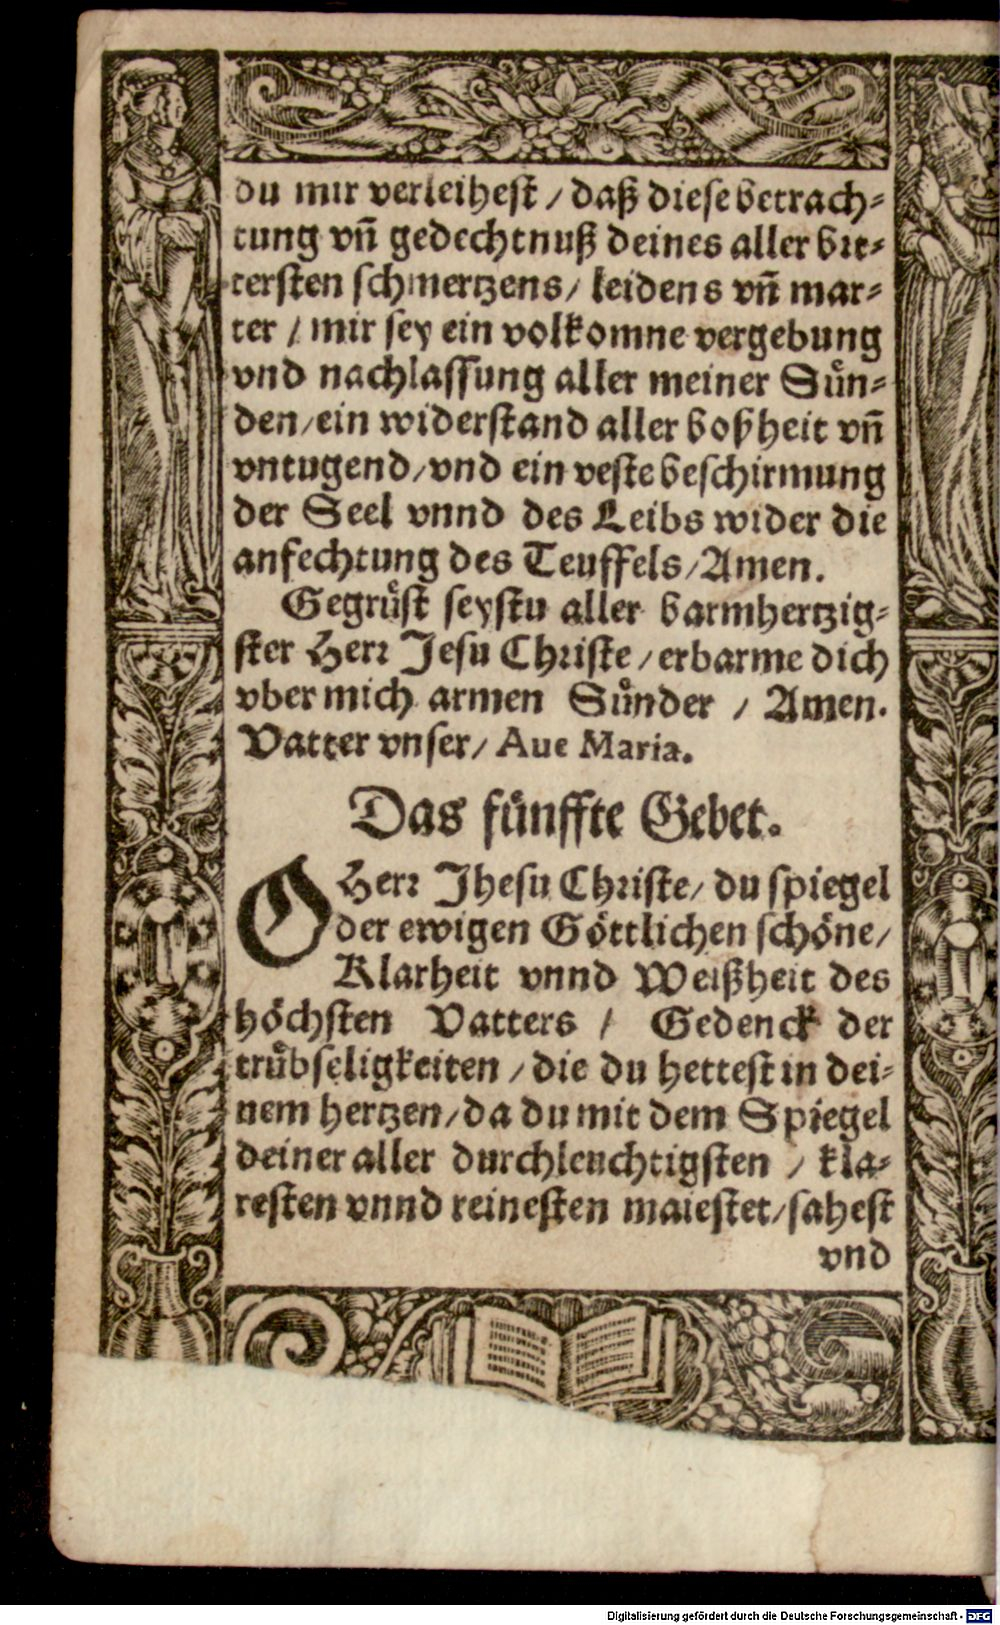 du mir verleihest / daß diese betrach-
tung vñ gedechtnuß deines aller bit-
tersten schmertzens / leidens vñ mar-
ter / mir sey ein volkomne vergebung
vnd nachlassung aller meiner Suͤn-
den / ein widerstand aller boßheit vñ
vntugend / vnd ein veste beschirmung
der Seel vnnd des Leibs wider die
anfechtung des Teuffels / Amen.
Gegruͤst seystu aller barmhertzig-
ster Herr Jesu Christe / erbarme dich
vber mich armen Suͤnder / Amen.
Vatter vnser / Aue Maria.
Das fuͤnffte Gebet.
O Herr Jhesu Christe / du spiegel
der ewigen Goͤttlichen schoͤne /
Klarheit vnnd Weißheit des
hoͤchsten Vatters / Gedenck der
truͤbseligkeiten / die du hettest in dei-
nem hertzen / da du mit dem Spiegel
deiner aller durchleuchtigsten / kla-
resten vnnd reinesten maiestet / sahest
vnd
Digitalisierung gefördert durch die Deutsche Forschungsgemeinschaft - DFG